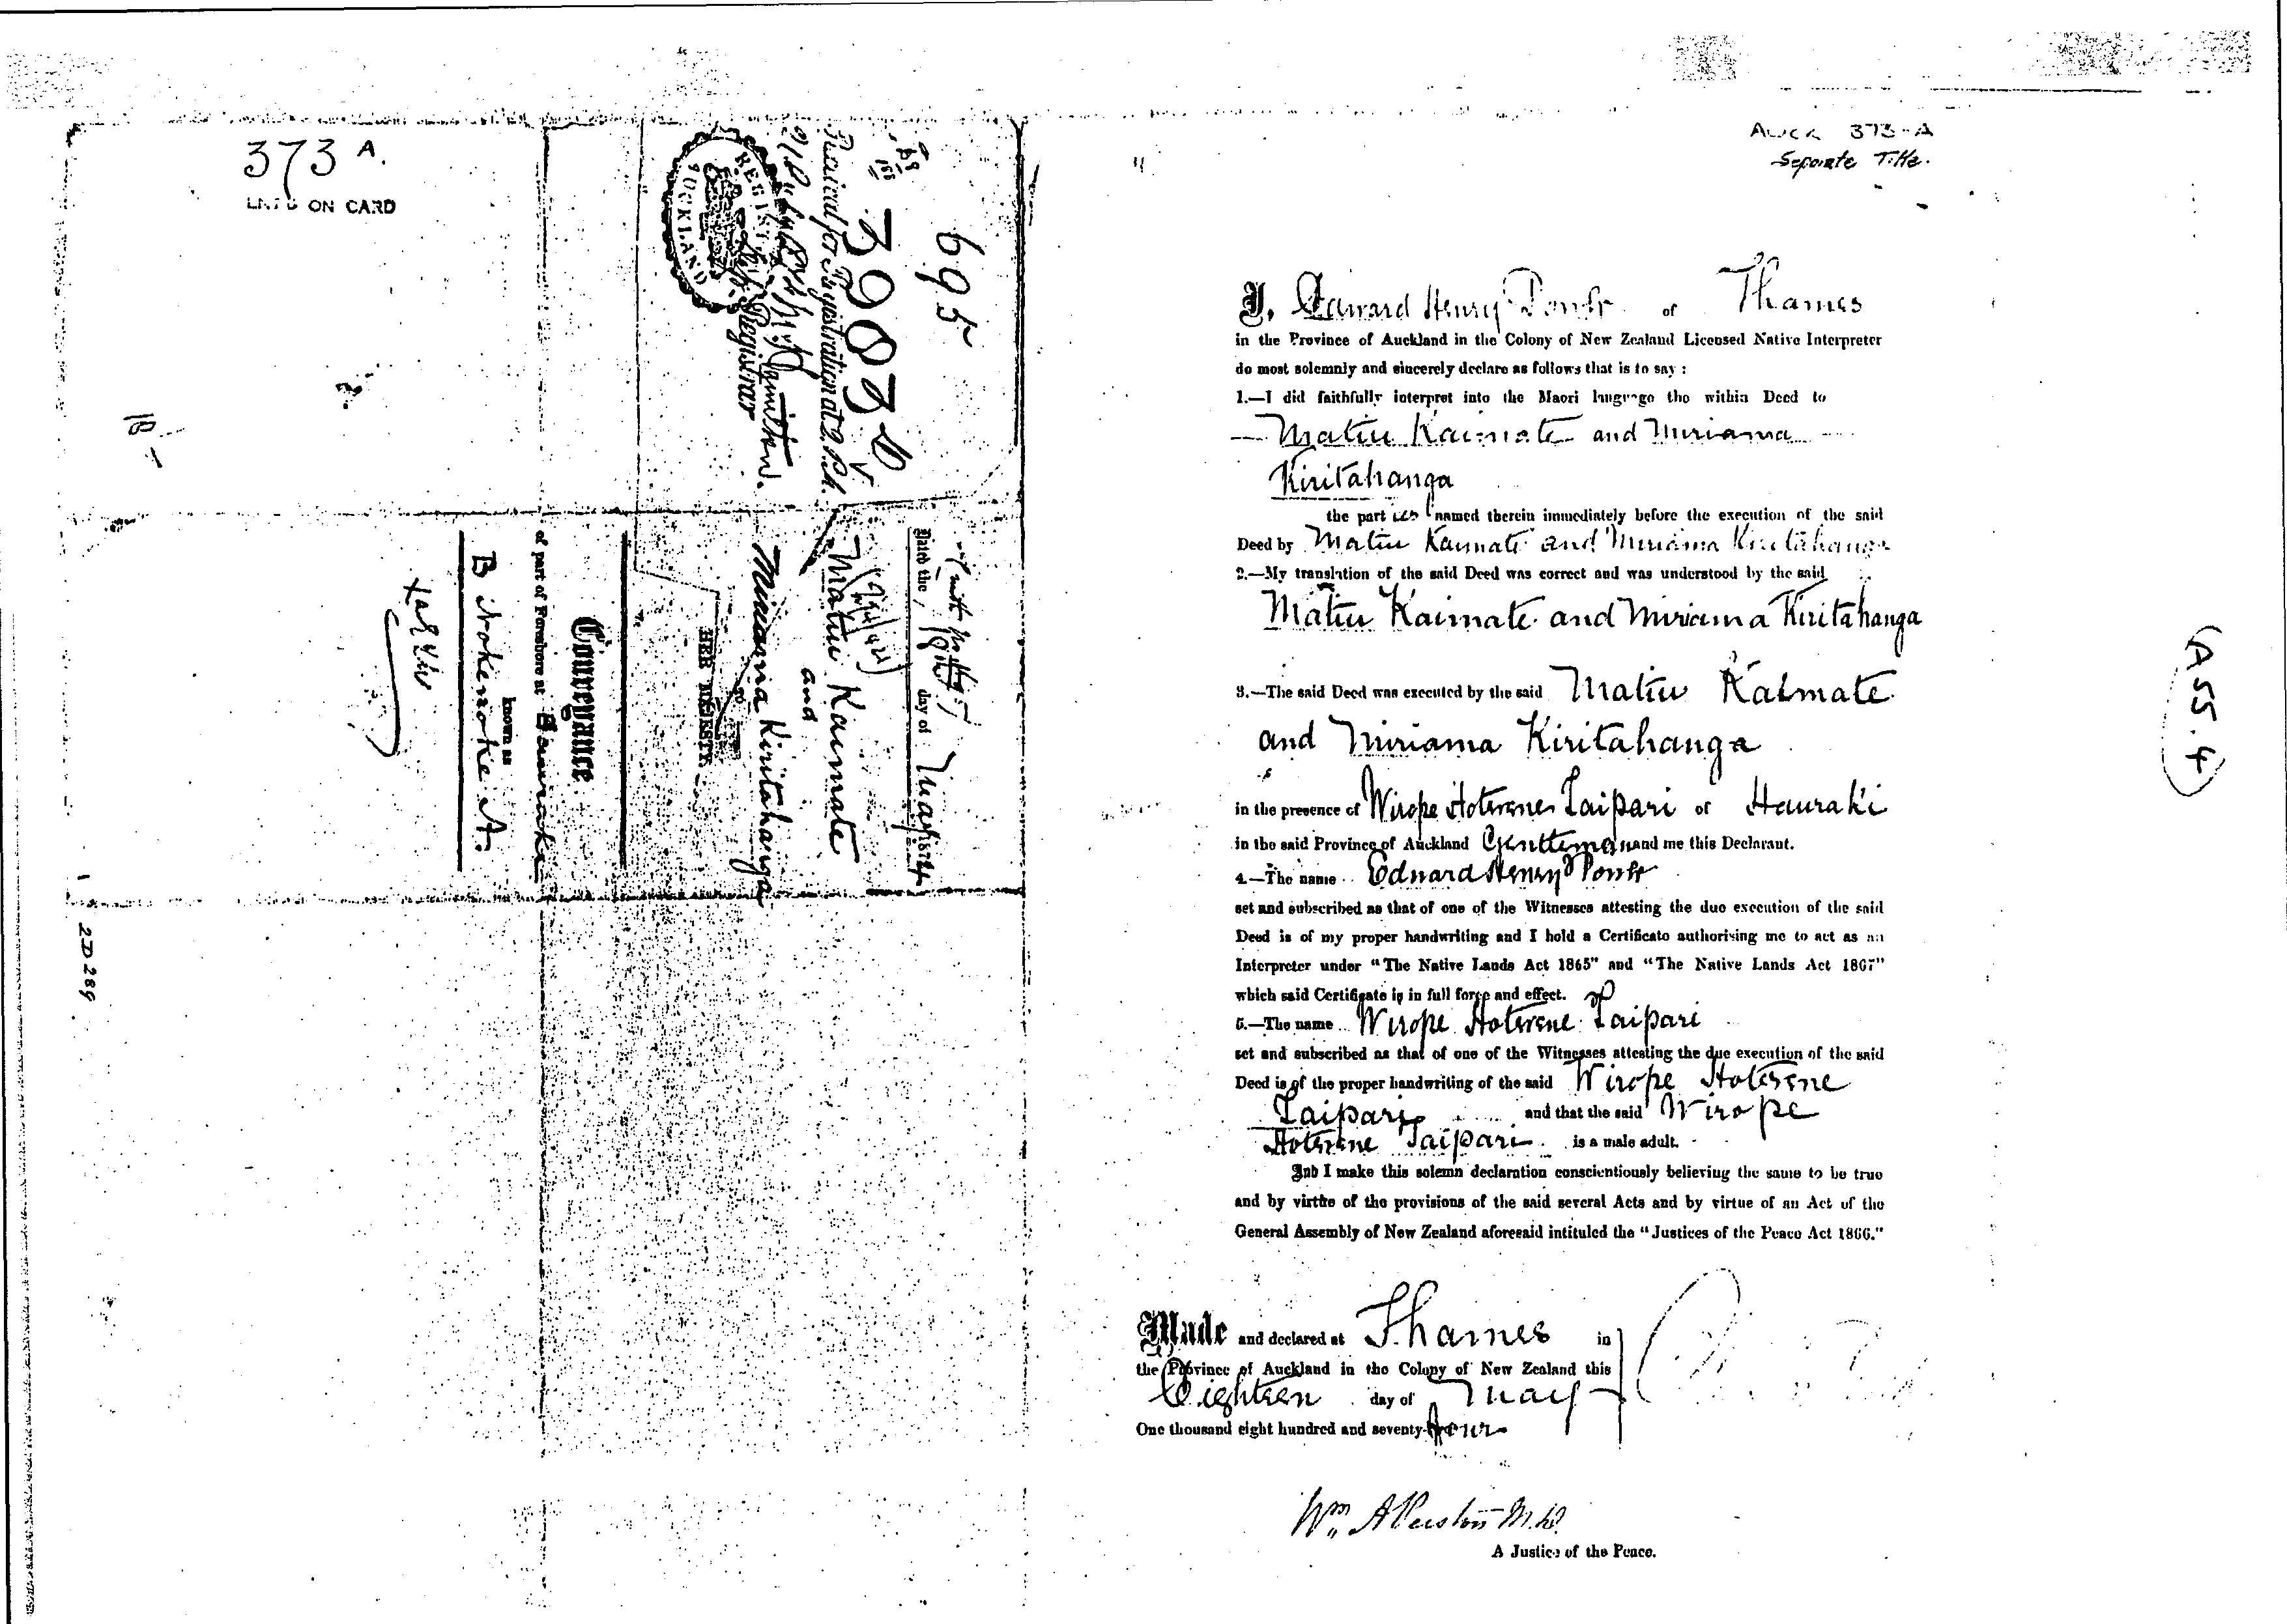 373 A.
ENTD ON CARD
695
3903 b
Received for Registration at 2 P.M.
REGIST
AUCKLAND
Registrar
Dated the 18th day of May 1874
Matiu Kaimate
and
Miriama Kiritahanga
to
HER MAJESTY
Conveyance
of part of Foreshore at
known as
B Nokenoke A.
2D289
AUCK 373-A
Separate Title.
I, Edward Henry of Thames
in the Province of Auckland in the Colony of New Zealand Licensed Native Interpreter
do most solemnly and sincerely declare as follows that is to say :
1.—I did faithfully interpret into the Maori language the within Deed to
Matiu Kaimate and Miriama
Kiritahanga
the parties named therein immediately before the execution of the said
Deed by Matiu Kaimate and Miriama Kiritahanga
2.—My translation of the said Deed was correct and was understood by the said
Matiu Kaimate and Miriama Kiritahanga
3.—The said Deed was executed by the said Matiu Kaimate
and Miriama Kiritahanga
in the presence of Wirope Hoterene Taipari of Hauraki
in the said Province of Auckland Gentleman and me this Declarant.
4.—The name Edward Henry
set and subscribed as that of one of the Witnesses attesting the due execution of the said
Deed is of my proper handwriting and I hold a Certificate authorising me to act as an
Interpreter under "The Native Lands Act 1865" and "The Native Lands Act 1867"
which said Certificate is in full force and effect.
5.—The name Wirope Hoterene Taipari
set and subscribed as that of one of the Witnesses attesting the due execution of the said
Deed is of the proper handwriting of the said Wirope Hoterene
Taipari and that the said Wirope
Hoterene Taipari is a male adult.
And I make this solemn declaration conscientiously believing the same to be true
and by virtue of the provisions of the said several Acts and by virtue of an Act of the
General Assembly of New Zealand aforesaid intituled the "Justices of the Peace Act 1866."
Made and declared at Thames in
the Province of Auckland in the Colony of New Zealand this
Eighteen day of May
One thousand eight hundred and seventy-four
Wm
A Justice of the Peace.
(A55.4)